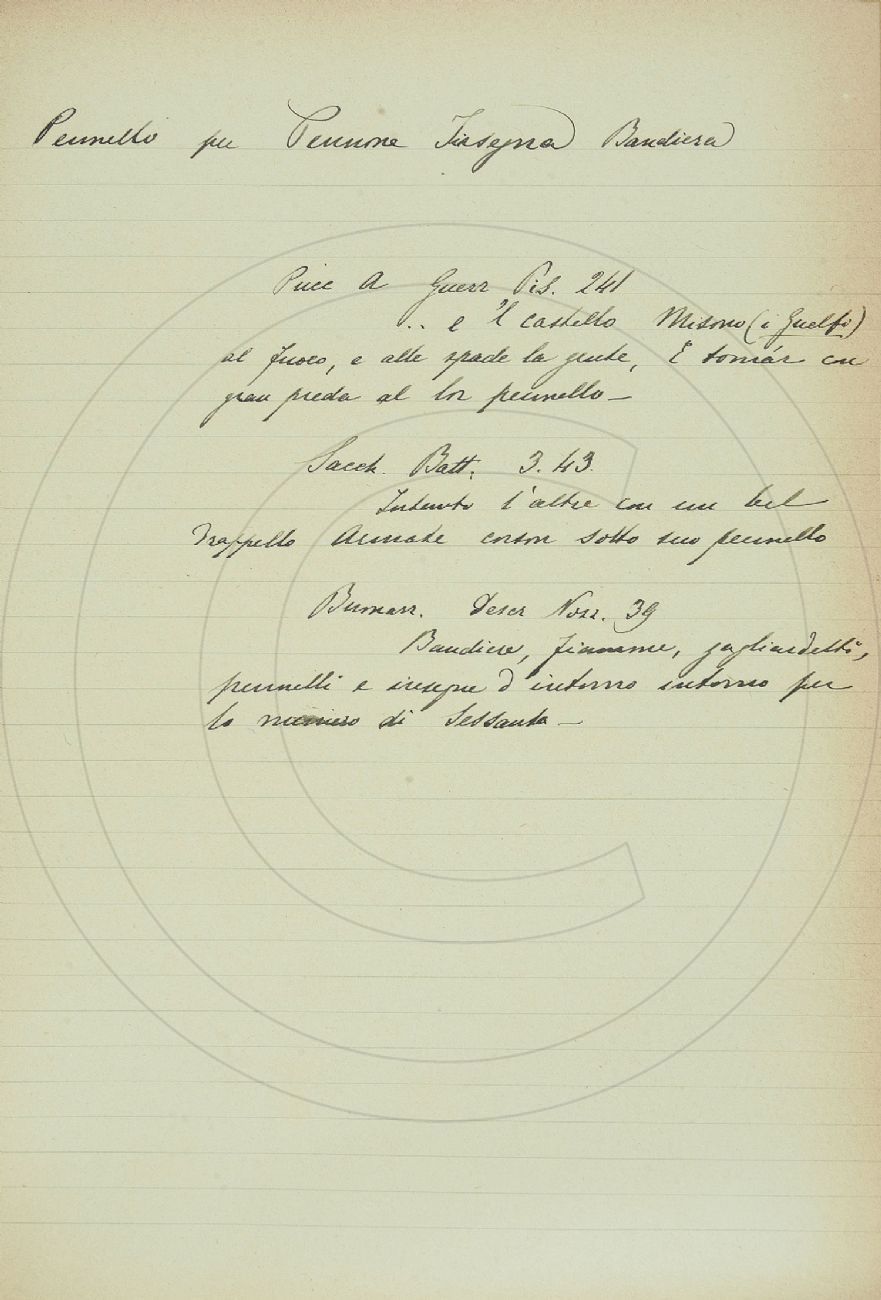 Pennello per Pennone Insegna Bandiera
Pucc A Guerr Pis. 241
.. e 'l castello Misono (i Guelfi)
al fuoco, e alle spade la gente, E tornár con
gran preda al lor pennello _
Sacch. Batt. 3. 43.
Intanto l'altre con un bel
Drappello Armate corson sotto suo pennello
Buonarr. Descr Nozz. 39
Bandiere, fiamme, gagliardetti,
pennelli e insegne d'intorno intorno per
lo numero di Sessanta _